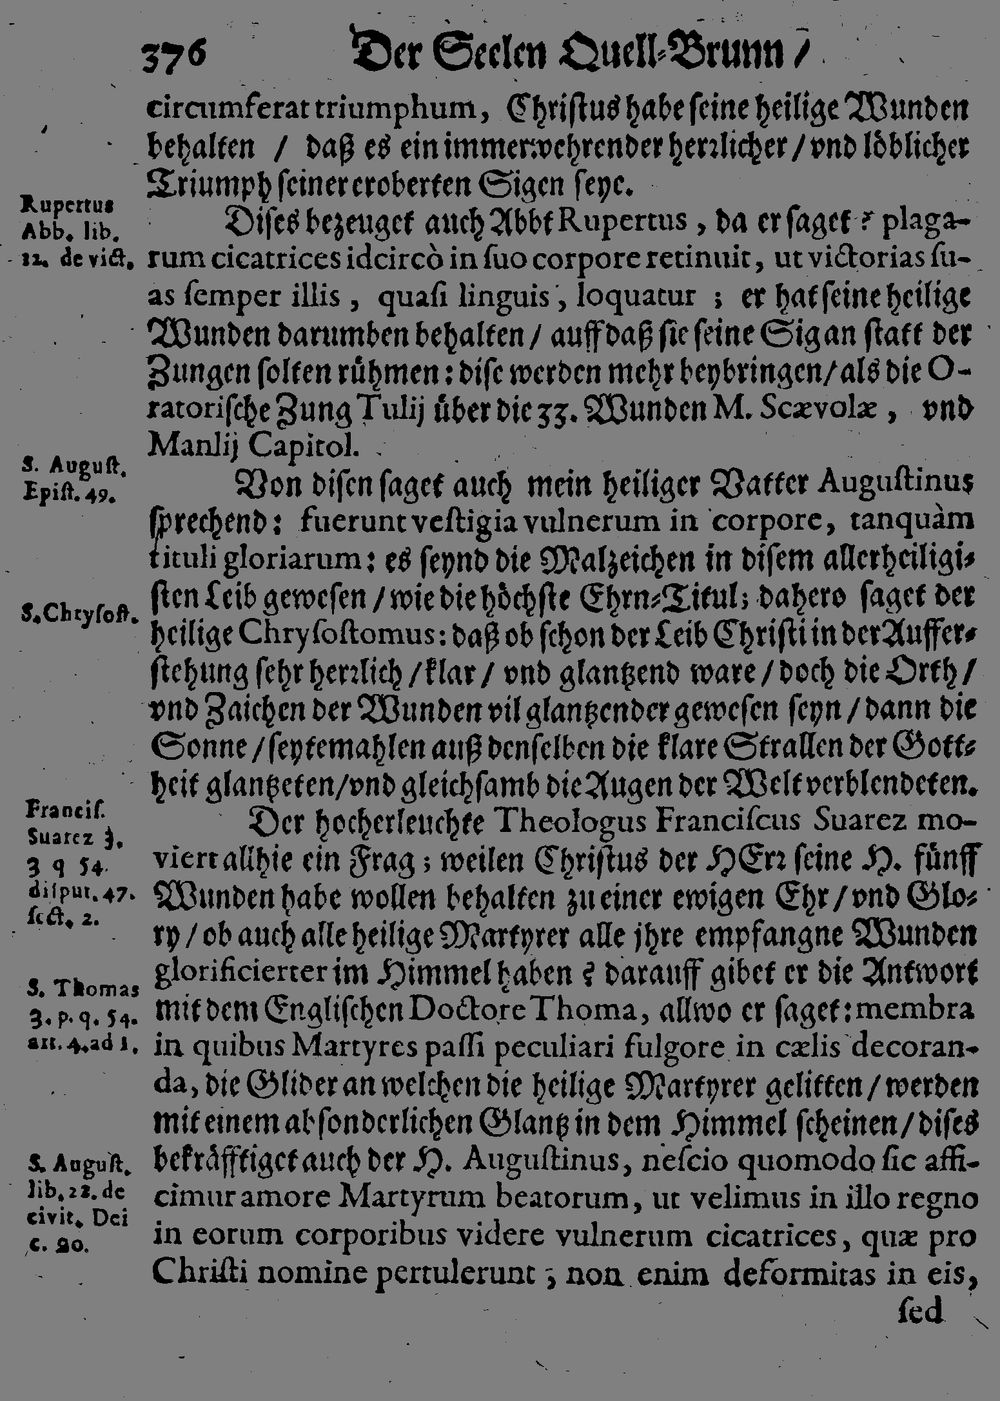 376 Der Seelen Quell-Brunn /
circumferat triumphum, Chriſtus habe ſeine heilige Wunden
behalten / daß es ein immerwehrender herꝛlicher / vnd löblicher
Triumph ſeiner eroberten Sigen ſeye.
Rupertus
Abb. lib.
12. de vict.
Diſes bezeuget auch Abbt Rupertus, da er ſaget: plaga-
rum cicatrices idcircò in ſuo corpore retinuit, ut victorias ſu-
as ſemper illis, quaſi linguis, loquatur; er hat ſeine heilige
Wunden darumben behalten / auff daß ſie ſeine Sig an ſtatt der
Zungen ſolten rühmen: diſe werden mehr beybringen / als die O-
ratoriſche Zung Tulij über die 33. Wunden M. Scævolæ, vnd
Manlij Capitol.
S. Auguſt.
Epiſt. 49.
Von diſen ſaget auch mein heiliger Vatter Auguſtinus
ſprechend: fuerunt veſtigia vulnerum in corpore, tanquàm
tituli gloriarum: es ſeynd die Malzeichen in diſem allerheiligi-
ſten Leib geweſen / wie die höchſte Ehrn-Titul; dahero ſaget der
S. Chryſoſt.
heilige Chryſoſtomus: daß ob ſchon der Leib Chriſti in der Auffer-
ſtehung ſehr herꝛlich / klar / vnd glantzend ware / doch die Orth /
vnd Zaichen der Wunden vil glantzender geweſen ſeyn / dann die
Sonne / ſeytemahlen auß denſelben die klare Strallen der Gott-
heit glantzeten / vnd gleichſamb die Augen der Welt verblendeten.
Franciſ.
Suarez 3.
3 q 54.
diſput. 47.
ſect. 2.
Der hocherleuchte Theologus Franciſcus Suarez mo-
viert allhie ein Frag; weilen Chriſtus der HErꝛ ſeine H. fünff
Wunden habe wollen behalten zu einer ewigen Ehr / vnd Glo-
ry / ob auch alle heilige Martyrer alle jhre empfangne Wunden
glorificierter im Himmel haben? darauff gibet er die Antwort
S. Thomas
3. p. q. 54.
art. 4. ad 1.
mit dem Engliſchen Doctore Thoma, allwo er ſaget: membra
in quibus Martyres paſſi peculiari fulgore in cælis decoran-
da, die Glider an welchen die heilige Martyrer gelitten / werden
mit einem abſonderlichen Glantz in dem Himmel ſcheinen / diſes
S. Auguſt.
lib. 22. de
civit. Dei
c. 20.
bekräfftiget auch der H. Auguſtinus, neſcio quomodo ſic affi-
cimur amore Martyrum beatorum, ut velimus in illo regno
in eorum corporibus videre vulnerum cicatrices, quæ pro
Chriſti nomine pertulerunt; non enim deformitas in eis,
ſed